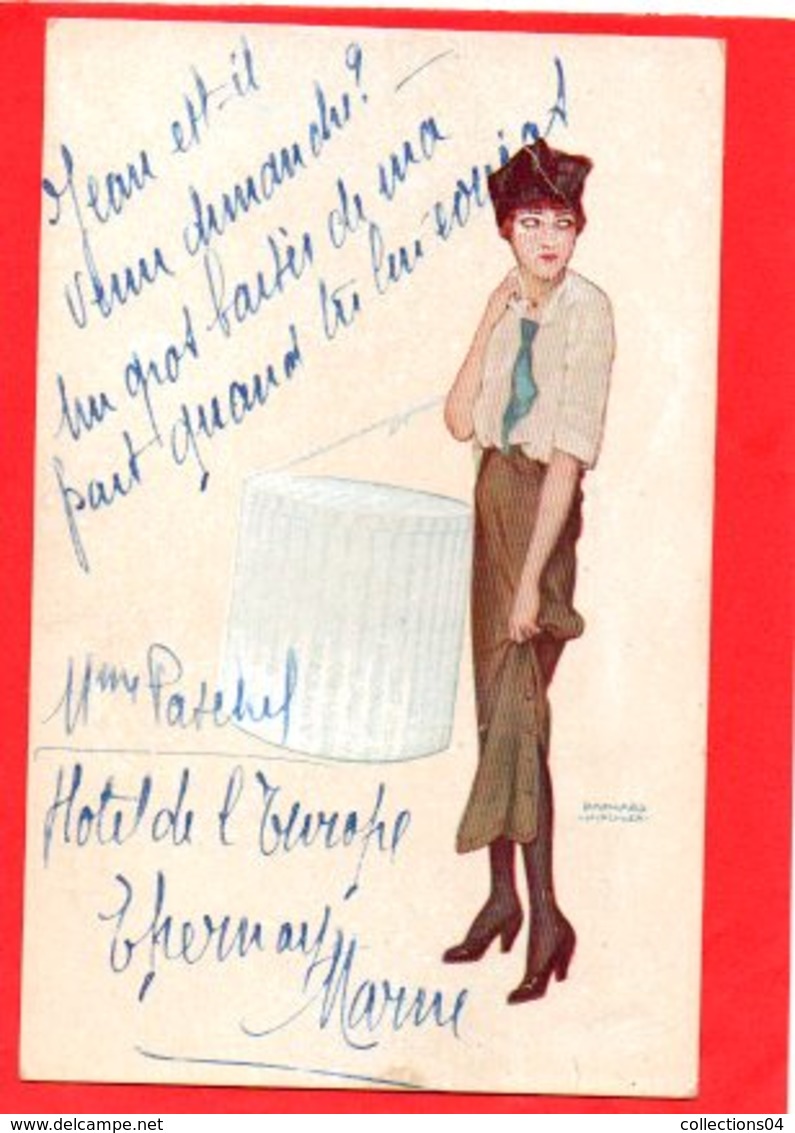 Jean est-il
venu dimanche? —
un gros baiser de ma
part quand tu lui
Mme Paschel
Hotel de l'Europe
Epernay
Marne
RAPHAEL
KIRCHNER
collections04